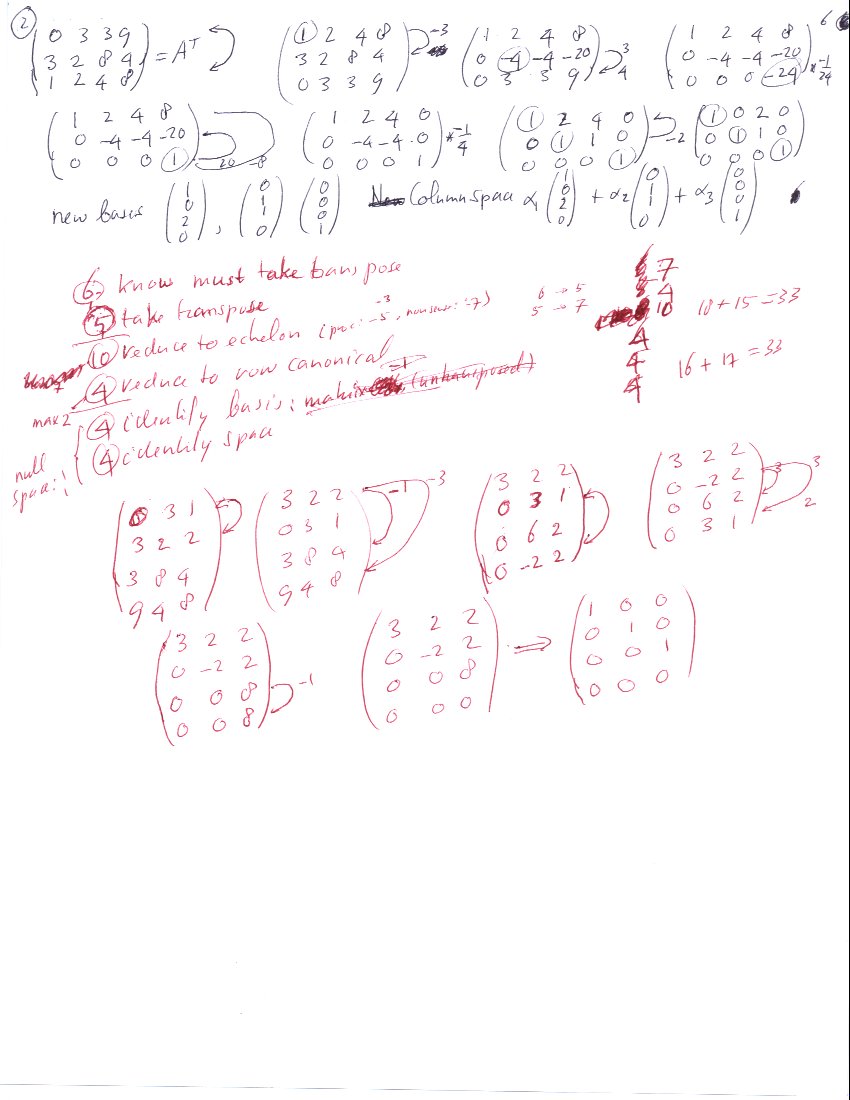 ②
( 0 3 3 9 / 3 2 8 4 / 1 2 4 8 ) = Aᵀ ( 1 2 4 8 / 3 2 8 4 / 0 3 3 9 ) -3 ( 1 2 4 8 / 0 -4 -4 -20 / 0 3 3 9 ) 3 4 ( 1 2 4 8 / 0 -4 -4 -20 / 0 0 0 -24 ) * -1/24 6
( 1 2 4 8 / 0 -4 -4 -20 / 0 0 0 1 ) 20 -8 ( 1 2 4 0 / 0 -4 -4 0 / 0 0 0 1 ) * -1/4 ( 1 2 4 0 / 0 1 1 0 / 0 0 0 1 ) -2 ( 1 0 2 0 / 0 1 1 0 / 0 0 0 1 )
new basis ( 1 0 2 0 ), ( 0 1 1 0 ) ( 0 0 0 1 ) Column space α₁ ( 1 0 2 0 ) + α₂ ( 0 1 1 0 ) + α₃ ( 0 0 0 1 )
⑥ know must take transpose
⑤ take transpose
⑩ reduce to echelon ( -3 -5, nonsense: -7)
④ reduce to row canonical
④ identify basis: matrix -1 (untransposed)
④ identify space
max 2
null space:
6 → 5
5 → 7
7
4
10
4
4
4
18 + 15 = 33
16 + 17 = 33
( 0 3 1 / 3 2 2 / 3 8 4 / 9 4 8 ) ( 3 2 2 / 0 3 1 / 3 8 4 / 9 4 8 ) -1 -3 ( 3 2 2 / 0 3 1 / 0 6 2 / 0 -2 2 ) ( 3 2 2 / 0 -2 2 / 0 6 2 / 0 3 1 ) 3 3 2
( 3 2 2 / 0 -2 2 / 0 0 8 / 0 0 8 ) -1 ( 3 2 2 / 0 -2 2 / 0 0 8 / 0 0 0 ) ⟹ ( 1 0 0 / 0 1 0 / 0 0 1 / 0 0 0 )